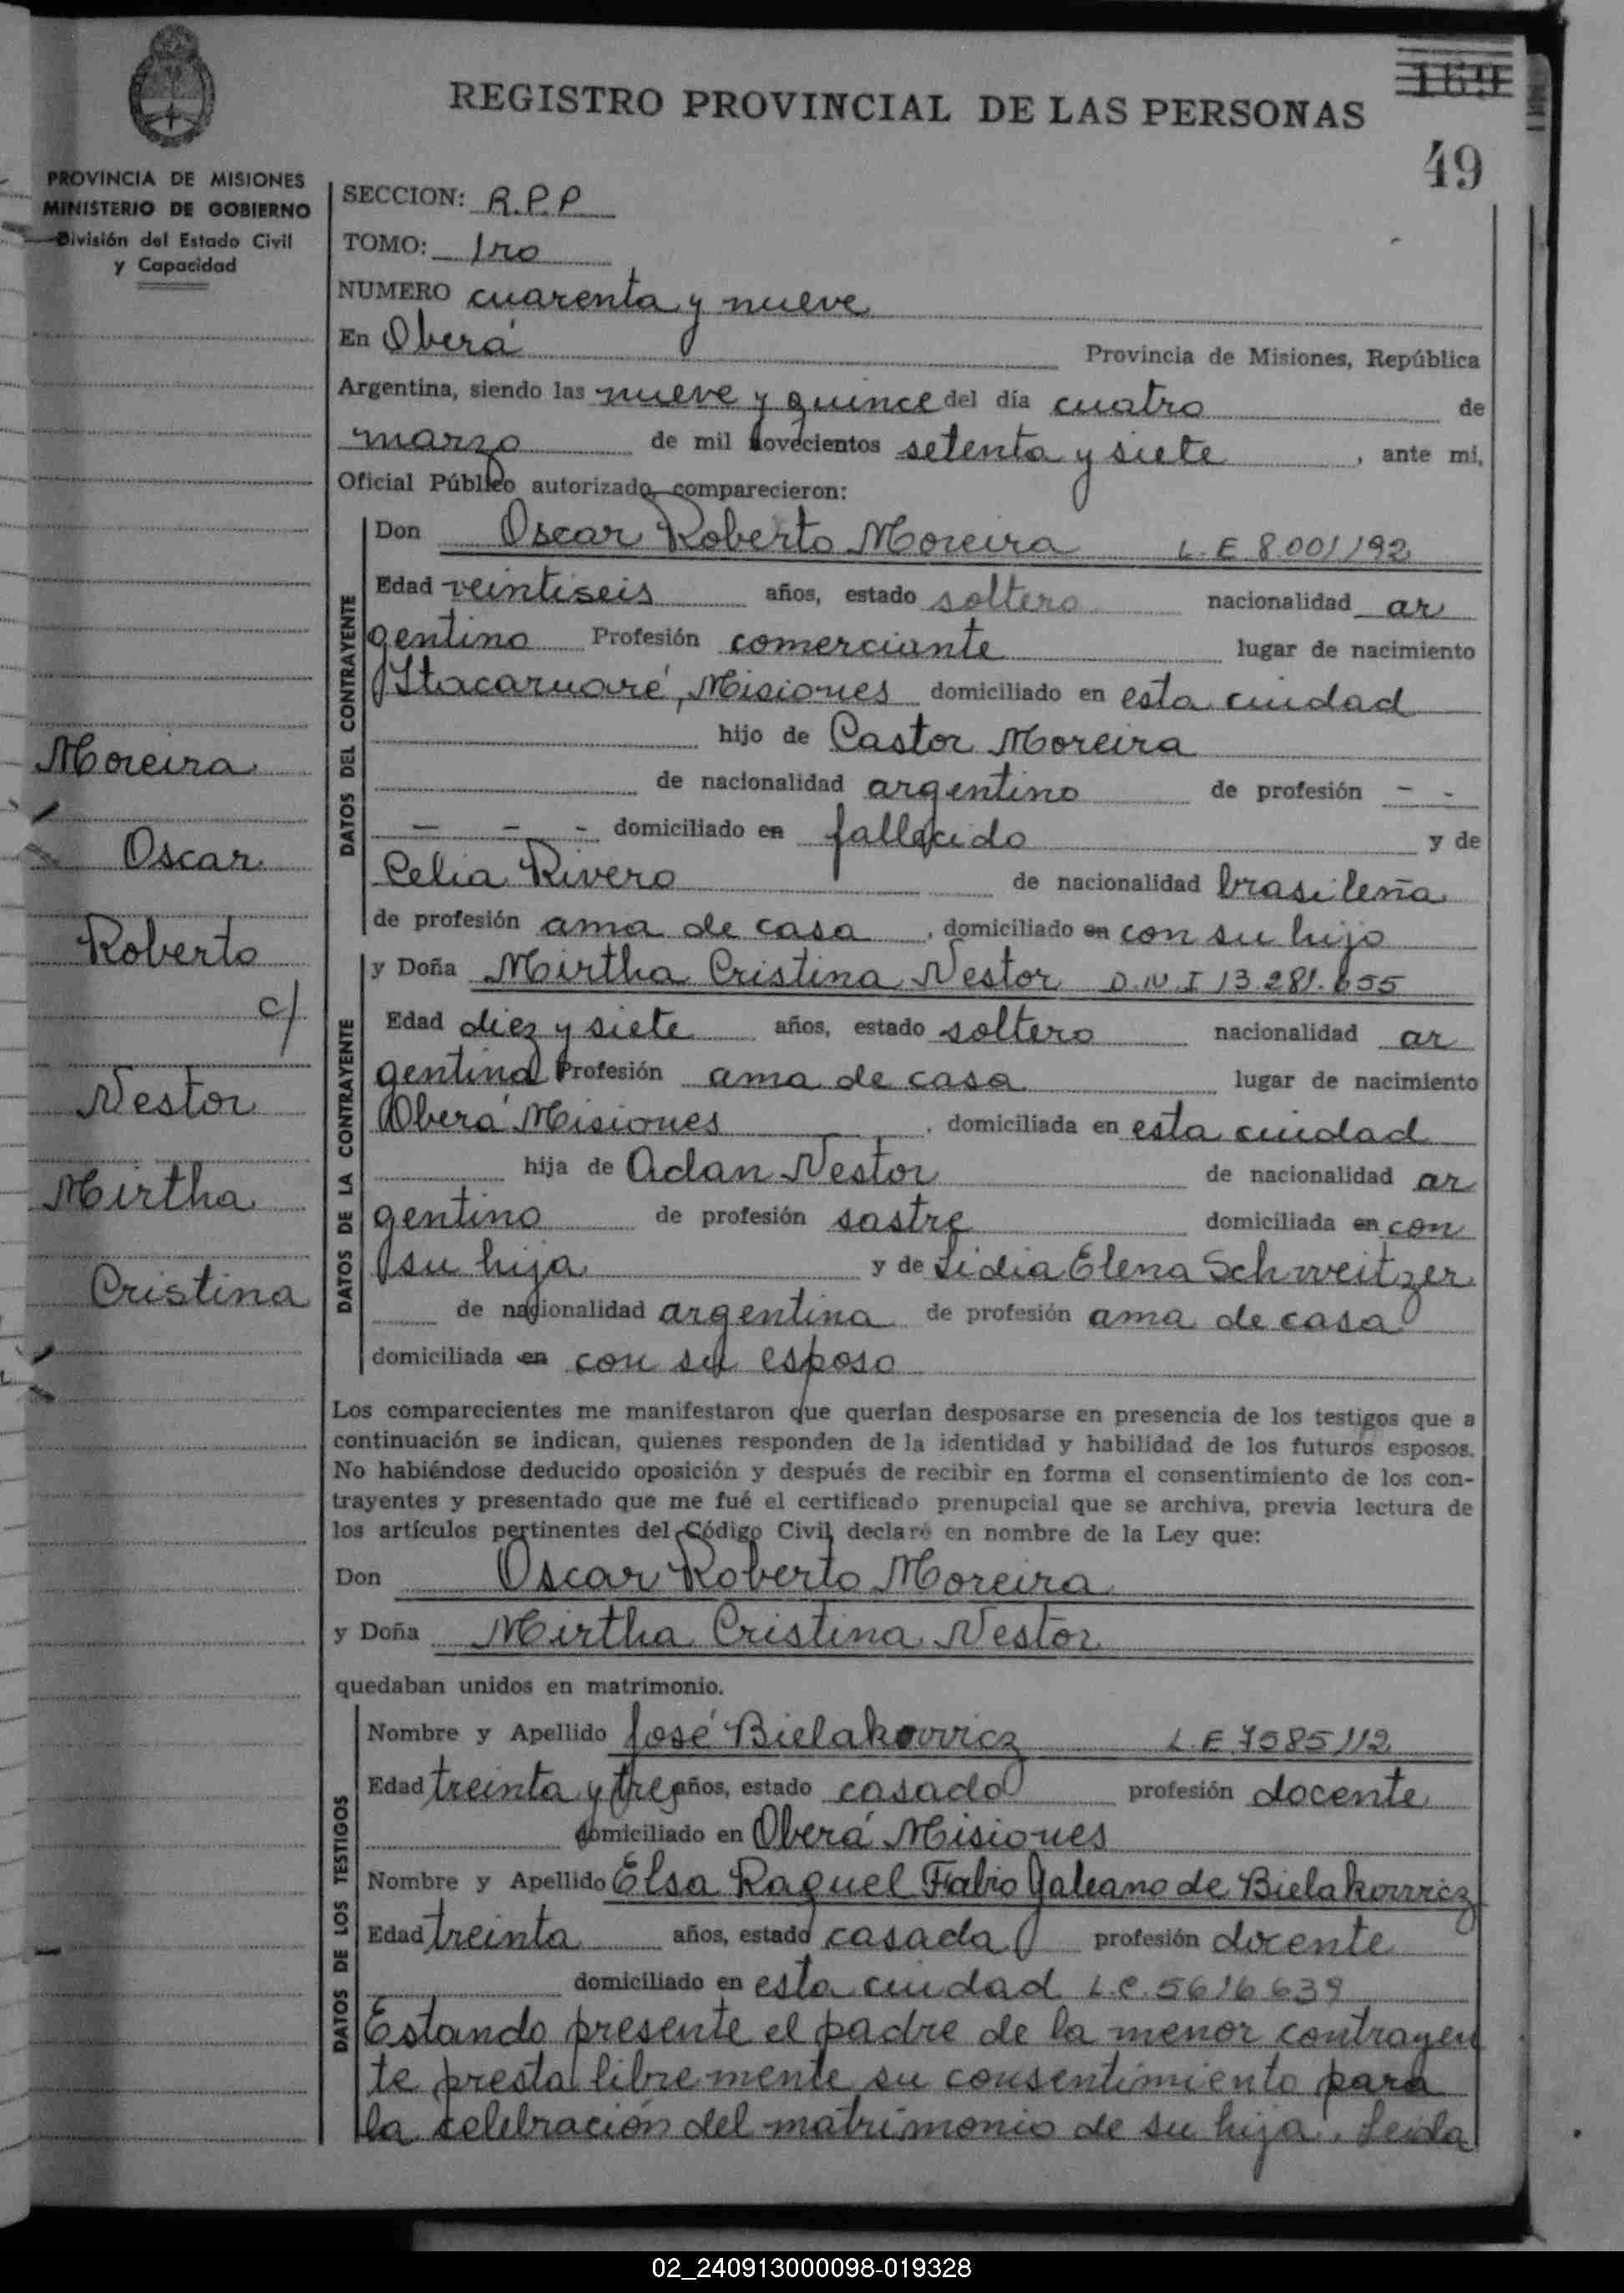 REGISTRO PROVINCIAL DE LAS PERSONAS
169
49
PROVINCIA DE MISIONES
MINISTERIO DE GOBIERNO
División del Estado Civil
y Capacidad
SECCION: R.P.P
TOMO: 1ro
NUMERO cuarenta y nueve
En Oberá Provincia de Misiones, República
Argentina, siendo las nueve y quince del día cuatro de
marzo de mil novecientos setenta y siete, ante mí,
Oficial Público autorizado, comparecieron:
DATOS DEL CONTRAYENTE
Don Oscar Roberto Moreira L.E 8001192
Edad veintiseis años, estado soltero nacionalidad ar
gentino Profesión comerciante lugar de nacimiento
Itacaruaré, Misiones domiciliado en esta ciudad
hijo de Castor Moreira
de nacionalidad argentino de profesión - -
- - - domiciliado en fallecido y de
Celia Rivero de nacionalidad brasileña
de profesión ama de casa, domiciliado en con su hijo
DATOS DE LA CONTRAYENTE
y Doña Mirtha Cristina Nestor D.N.I 13.281.655
Edad diez y siete años, estado soltero nacionalidad ar
gentina Profesión ama de casa lugar de nacimiento
Oberá Misiones, domiciliada en esta ciudad
hija de Adan Nestor de nacionalidad ar
gentino de profesión sastre domiciliada en con
su hija y de Lidia Elena Schweitzer
de nacionalidad argentina de profesión ama de casa
domiciliada en con su esposo
Los comparecientes me manifestaron que querían desposarse en presencia de los testigos que a
continuación se indican, quienes responden de la identidad y habilidad de los futuros esposos.
No habiéndose deducido oposición y después de recibir en forma el consentimiento de los con-
trayentes y presentado que me fué el certificado prenupcial que se archiva, previa lectura de
los artículos pertinentes del Código Civil, declaré en nombre de la Ley que:
Don Oscar Roberto Moreira
y Doña Mirtha Cristina Nestor
quedaban unidos en matrimonio.
DATOS DE LOS TESTIGOS
Nombre y Apellido José Bielakowicz L.E 7585112
Edad treinta y tres años, estado casado profesión docente
domiciliado en Oberá Misiones
Nombre y Apellido Elsa Raquel Fabio Galeano de Bielakowicz
Edad treinta años, estado casada profesión docente
domiciliado en esta ciudad L.C. 5616639
Estando presente el padre de la menor contrayen
te presta libremente su consentimiento para
la celebración del matrimonio de su hija. Leida
Moreira
Oscar
Roberto
c/
Nestor
Mirtha
Cristina
02_240913000098-019328